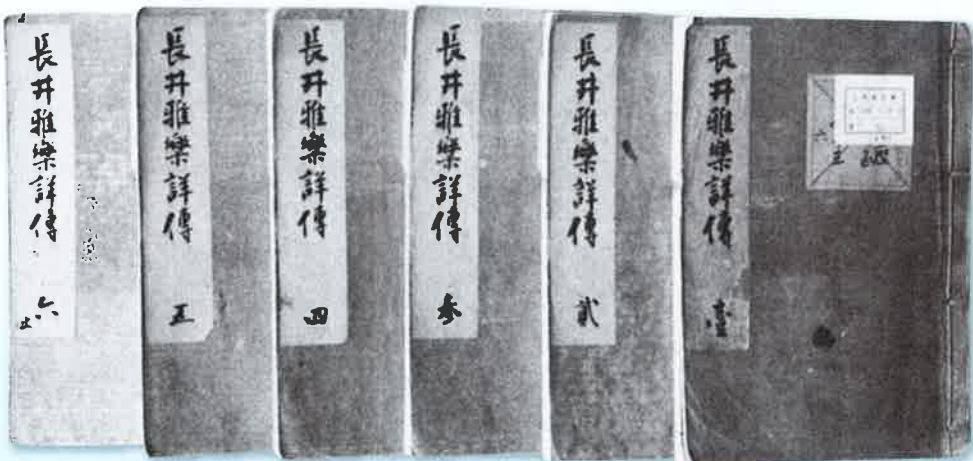 長井雅樂詳傳 壹
長井雅樂詳傳 貳
長井雅樂詳傳 參
長井雅樂詳傳 四
長井雅樂詳傳 五
長井雅樂詳傳 六止